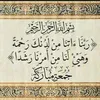 بسم الله الرحمن الرحيم
ربنا ءاتنا من لدنك رحمة
وهيئ لنا من أمرنا رشدا
جمعة مباركة